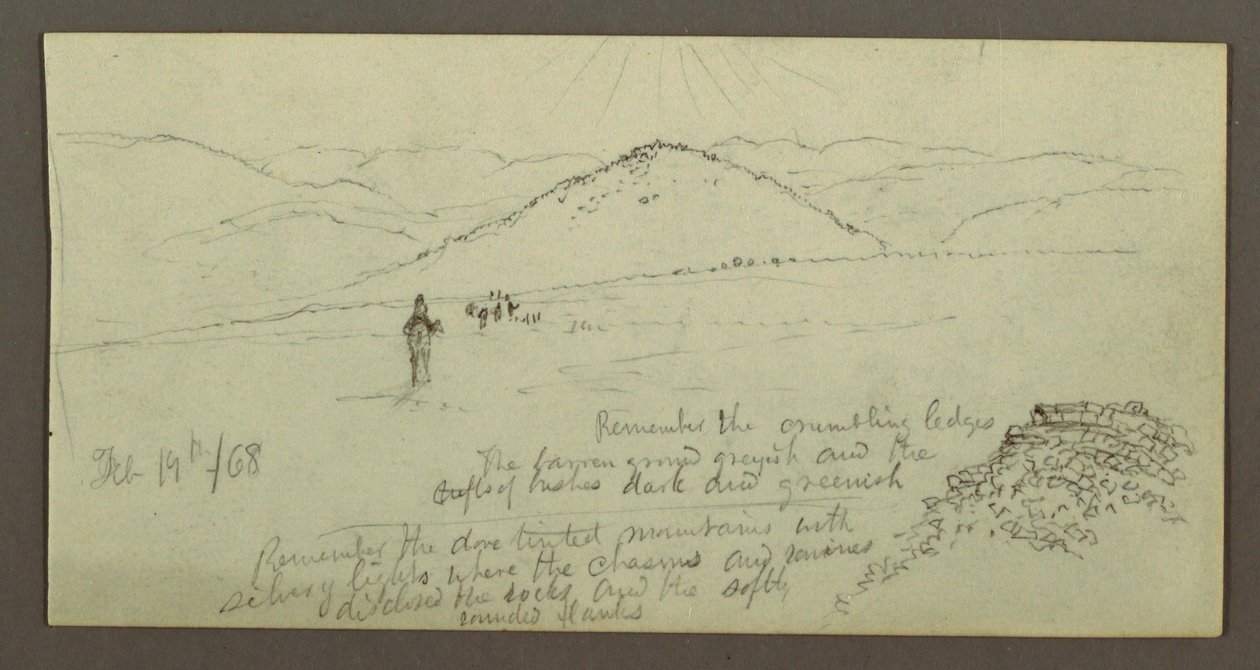 Feb 19th/68
Remember the crumbling ledges
The barren ground greyish and the
tufts of bushes dark and greenish
Remember the dove tinted mountains with
silvery lights where the chasms and ravines
disclosed the rocks and the soft,
rounded flanks